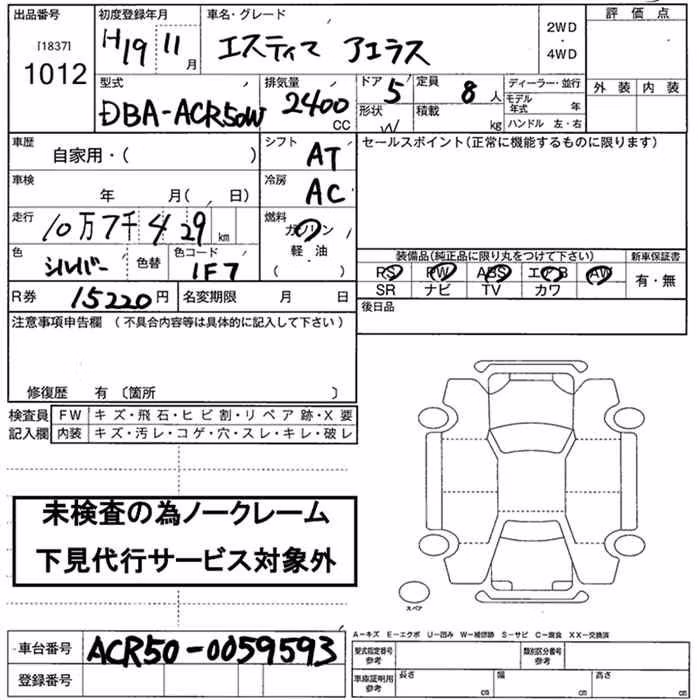 出品番号
[1837]
1012
初度登録年月
H19 11月
車名・グレード
エスティマ アエラス
2WD
・
4WD
評価点
外装 内装
型式
DBA-ACR50W
排気量
2400
CC
ドア 5
形状 W
定員 8人
積載 kg
ディーラー・並行
モデル年式 年
ハンドル 左・右
車歴
自家用・( )
シフト
AT
セールスポイント(正常に機能するものに限ります)
車検
年 月( 日)
冷房
AC
走行
10万7千429km
燃料
ガソリン
軽・油
( )
色
シルバー
色替
色コード
1F7
装備品(純正品に限り丸をつけて下さい)
PS PW ABS エアB AW
SR ナビ TV カワ
新車保証書
有・無
R券 15220円
名変期限 月 日
後日品
注意事項申告欄 (不具合内容等は具体的に記入して下さい)
修復歴 有〔箇所 〕
検査員記入欄
FW キズ・飛石・ヒビ割・リペア跡・X要
内装 キズ・汚レ・コゲ・穴・スレ・キレ・破レ
未検査の為ノークレーム
下見代行サービス対象外
スペア
A−キズ E−エクボ U−凹み W−補修跡 S−サビ C−腐食 XX−交換済
車台番号 ACR50-0059593
登録番号
型式指定番号
参考
類別区分番号
参考
車庫証明用
参考
長さ cm
幅 cm
高さ cm